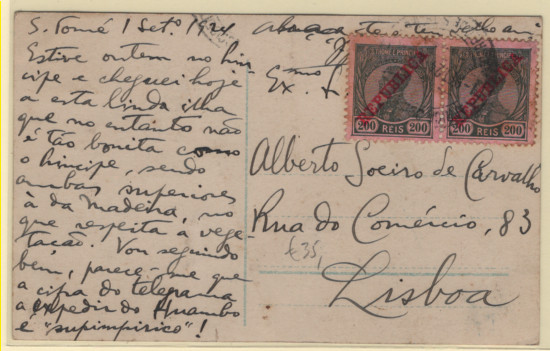 S. Tomé 1 Setº. 1924
Estive ontem no Prín-
cipe e cheguei hoje
a esta linda ilha
que no entanto não
é tão bonita como
o Príncipe, sendo
ambas superiores
à da Madeira, no
que respeita a vege-
tação. Vou seguindo
bem, parece-me que
a cifra do telegrama
a expedir do Huambo
é "supimpirico"!
Abraça-te o teu velho am
Ex.mo
REPUBLICA
200 REIS 200
REPUBLICA
200 REIS 200
Alberto Soeiro de Carvalho
Rua do Comércio, 83
€35,
Lisboa